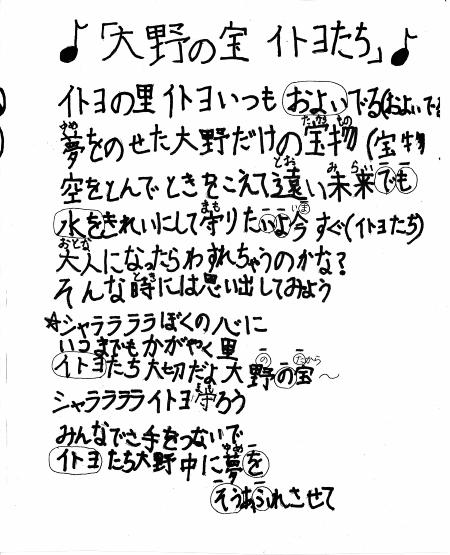 ♪「大野の宝 イトヨたち」♪
イトヨの里 イトヨいつも およいでる(およいでる
夢をのせた大野だけの宝物(宝物
空をとんでときをこえて遠い未来でも
水をきれいにして守りたいよ今すぐ(イトヨたち)
大人になったらわすれちゃうのかな?
そんな時には思い出してみよう
☆シャララララぼくの心に
いつまでもかがやく里
イトヨたち大切だよ大野の宝～
シャラララライトヨ守ろう
みんなで手をつないで
イトヨたち大野中に夢を
そうあふれさせて